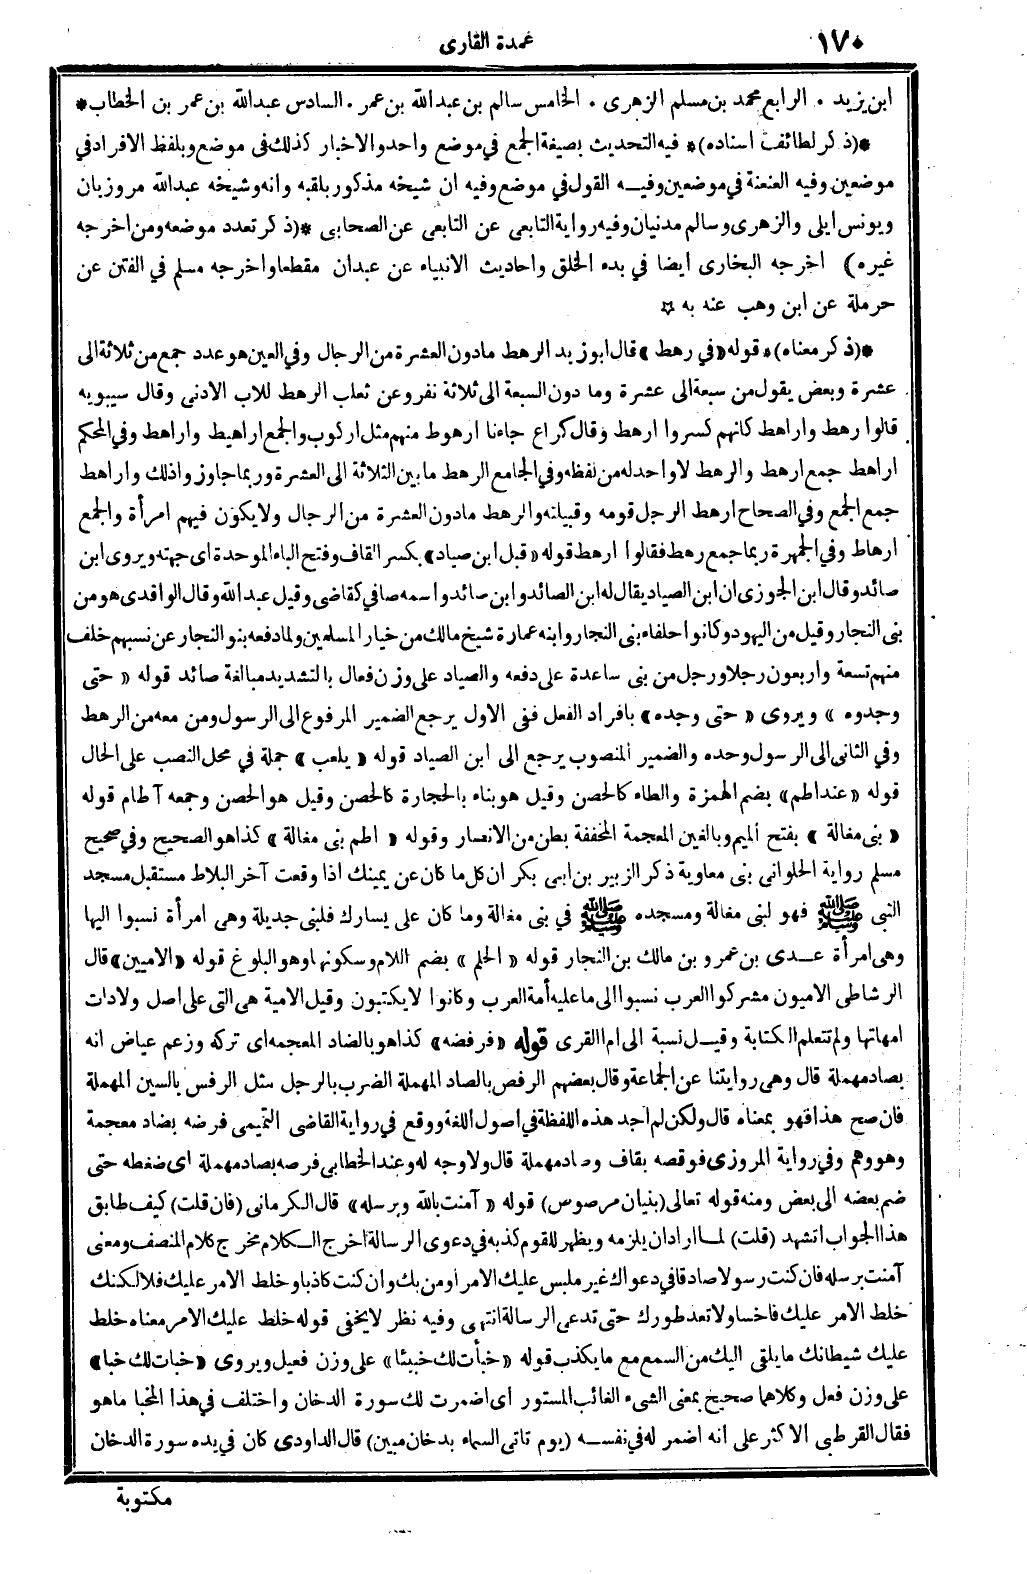 ١٧٠
عمدة القارى
ابن يزيد . الرابع محمد بن مسلم الزهرى . الخامس سالم بن عبدالله بن عمر . السادس عبدالله بن عمر بن الخطاب *
*(ذكر لطائف اسناده)* فيه التحديث بصيغة الجمع في موضع واحد والاخبار كذلك فى موضع وبلفظ الافراد في
موضعين وفيه العنعنة في موضعين وفيه القول في موضع وفيه ان شيخه مذكور بلقبه وانه وشيخه عبدالله مروزيان
ويونس ايلى والزهرى وسالم مدنيان وفيه رواية التابعى عن التابعى عن الصحابى *(ذكر تعدد موضعه ومن اخرجه
غيره) اخرجه البخارى ايضا في بدء الخلق واحاديث الانبياء عن عبدان مقطعا واخرجه مسلم في الفتن عن
حرملة عن ابن وهب عنه به *
*(ذكر معناه)* قوله «في رهط» قال ابو زيد الرهط مادون العشرة من الرجال وفي العين هو عدد جمع من ثلاثة الى
عشرة وبعض يقول من سبعة الى عشرة وما دون السبعة الى ثلاثة نفر وعن ثعلب الرهط للاب الادنى وقال سيبويه
قالوا رهط واراهط كانهم كسروا ارهط وقال كراع جاءنا ارهوط منهم مثل اركوب والجمع اراهيط واراهط وفي المحكم
اراهط جمع ارهط والرهط لا واحد له من لفظه وفي الجامع الرهط ما بين الثلاثة الى العشرة وربما جاوزوا ذلك واراهط
جمع الجمع وفي الصحاح ارهط الرجل قومه وقبيلته والرهط مادون العشرة من الرجال ولا يكون فيهم امرأة والجمع
ارهاط وفي الجمهرة ربما جمع رهط فقالوا ارهط قوله «قبل ابن صياد» بكسر القاف وفتح الباء الموحدة اى جهته ويروى ابن
صائد وقال ابن الجوزى ان ابن الصياد يقال له ابن الصائد وابن صائد واسمه صافي كقاضى وقيل عبدالله وقال الواقدى هو من
بنى النجار وقيل من اليهود وكانوا حلفاء بنى النجار وابنه عمارة شيخ مالك من خيار المسلمين ولما دفعه بنو النجار عن نسبهم خلف
منهم تسعة واربعون رجلا ورجل من بنى ساعدة على دفعه والصياد على وزن فعال بالتشديد مبالغة صائد قوله «حتى
وجدوه» ويروى «حتى وجده» بافراد الفعل ففى الاول يرجع الضمير المرفوع الى الرسول ومن معه من الرهط
وفي الثانى الى الرسول وحده والضمير المنصوب يرجع الى ابن الصياد قوله «يلعب» جملة في محل النصب على الحال
قوله «عند اطم» بضم الهمزة والطاء كالحصن وقيل هو بناء بالحجارة كالحصن وقيل هو الحصن وجمعه آطام قوله
«بنى مغالة» بفتح الميم وبالغين المعجمة المخففة بطن من الانصار وقوله «اطم بنى مغالة» كذا هو الصحيح وفي صحيح
مسلم رواية الحلوانى بنى معاوية ذكر الزبير بن ابى بكر ان كل ما كان عن يمينك اذا وقعت آخر البلاط مستقبل مسجد
النبى ﷺ فهو لبنى مغالة ومسجده ﷺ في بنى مغالة وما كان على يسارك فلبنى جديلة وهى امرأة نسبوا اليها
وهى امرأة عدى بن عمرو بن مالك بن النجار قوله «الحلم» بضم اللام وسكونها وهو البلوغ قوله «الاميين» قال
الرشاطى الاميون مشركوا العرب نسبوا الى ما عليه أمة العرب وكانوا لا يكتبون وقيل الامية هى التى على اصل ولادات
امهاتها ولم تتعلم الكتابة وقيل نسبة الى ام القرى قوله «فرفضه» كذا هو بالضاد المعجمه اى تركه وزعم عياض انه
بصاد مهملة قال وهى روايتنا عن الجماعة وقال بعضهم الرفص بالصاد المهملة الضرب بالرجل مثل الرفس بالسين المهملة
فان صح هذا فهو بمعناه قال ولكن لم اجد هذه اللفظة في اصول اللغة ووقع في رواية القاضى التميمى فرضه بضاد معجمة
وهو وهم وفي رواية المروزى فوقصه بقاف وصاد مهملة قال ولا وجه له وعند الخطابى فرصه بصاد مهملة اى ضغطه حتى
ضم بعضه الى بعض ومنه قوله تعالى (بنيان مرصوص) قوله «آمنت بالله وبرسله» قال الكرمانى (فان قلت) كيف طابق
هذا الجواب اتشهد (قلت) لما اراد ان يلزمه ويظهر للقوم كذبه في دعوى الرسالة اخرج الكلام مخرج كلام المنصف ومعنى
آمنت برسله فان كنت رسولا صادقا في دعواك غير ملبس عليك الامر اومن بك وان كنت كاذبا وخلط الامر عليك فلا لكنك
خلط الامر عليك فاخسا ولا تعد طورك حتى تدعى الرسالة انتهى وفيه نظر لا يخفى قوله خلط عليك الامر معناه خلط
عليك شيطانك ما يلقى اليك من السمع مع ما يكذب قوله «خبأت لك خبيئا» على وزن فعيل ويروى «خبات لك خبا»
على وزن فعل وكلاهما صحيح بمعنى الشىء الغائب المستور اى اضمرت لك سورة الدخان واختلف في هذا المخبا ما هو
فقال القرطبى الاكثر على انه اضمر له في نفسه (يوم تاتى السماء بدخان مبين) قال الداودى كان في يده سورة الدخان
مكتوبة